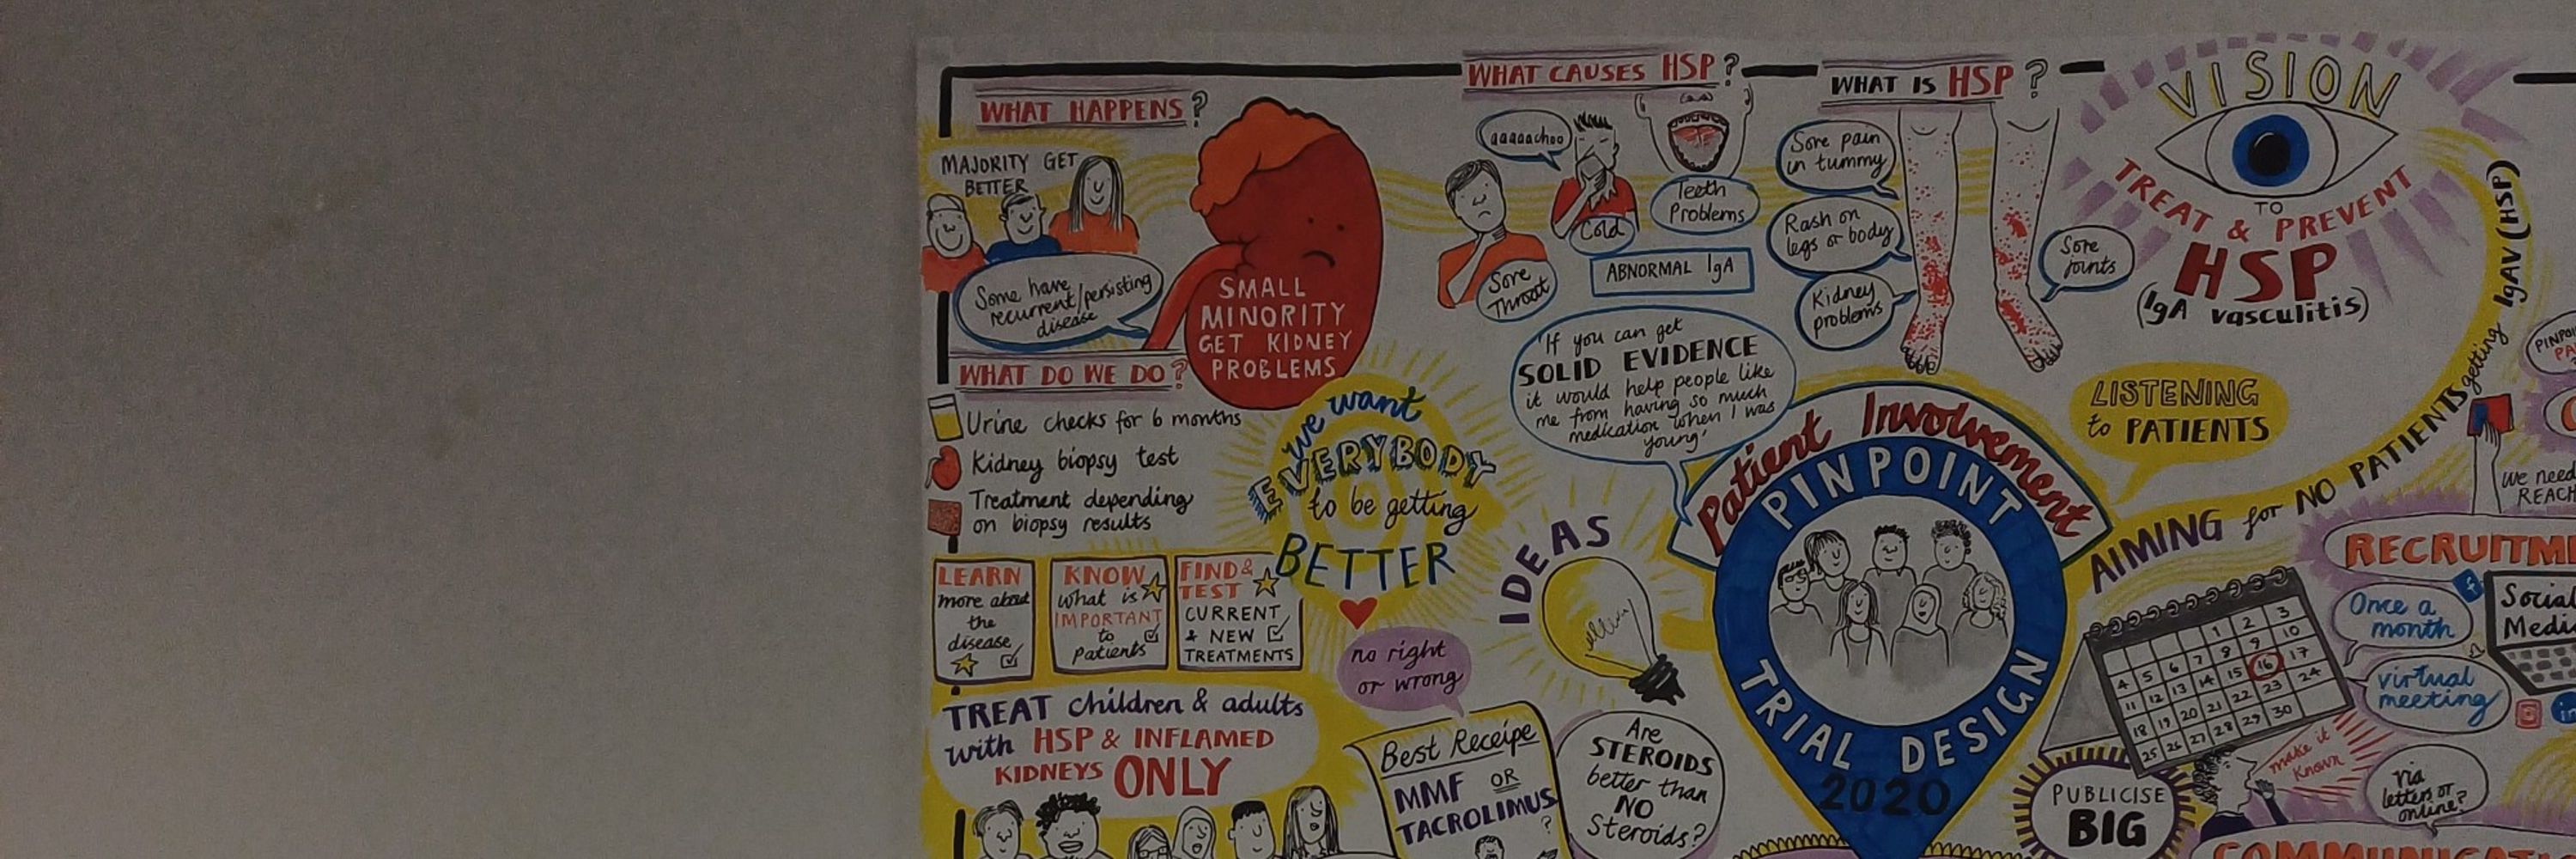 WHAT HAPPENS?
MAJORITY GET
BETTER
Some have
recurrent/persisting
disease
SMALL
MINORITY
GET KIDNEY
PROBLEMS
WHAT DO WE DO?
Urine checks for 6 months
Kidney biopsy test
Treatment depending
on biopsy results
we want
EVERYBODY
to be getting
BETTER
LEARN
more about
the
disease
KNOW
what is
IMPORTANT
to
patients
FIND &
TEST
CURRENT
& NEW
TREATMENTS
TREAT children & adults
with HSP & INFLAMED
KIDNEYS ONLY
no right
or wrong
Best Receipe
MMF OR
TACROLIMUS
?
WHAT CAUSES HSP?
aaaaachoo
Sore
Throat
Cold
Teeth
Problems
ABNORMAL IgA
'If you can get
SOLID EVIDENCE
it would help people like
me from having so much
medication when I was
young'
IDEAS
Are
STEROIDS
better than
NO
Steroids?
WHAT IS HSP?
Sore pain
in tummy
Rash on
legs or body
Kidney
problems
Sore
joints
VISION
TO
TREAT & PREVENT
HSP
(IgA vasculitis)
LISTENING
to PATIENTS
Patient Involvement
PINPOINT
TRIAL DESIGN
2020
AIMING for NO PATIENTS getting IgAV (HSP)
we need
REACH
Once a
month
virtual
meeting
Social
1 2 3
4 5 6 7 8 9 10
11 12 13 14 15 16 17
18 19 20 21 22 23 24
25 26 27 28 29 30
make it
known
PUBLICISE
BIG
via
letters or
online?